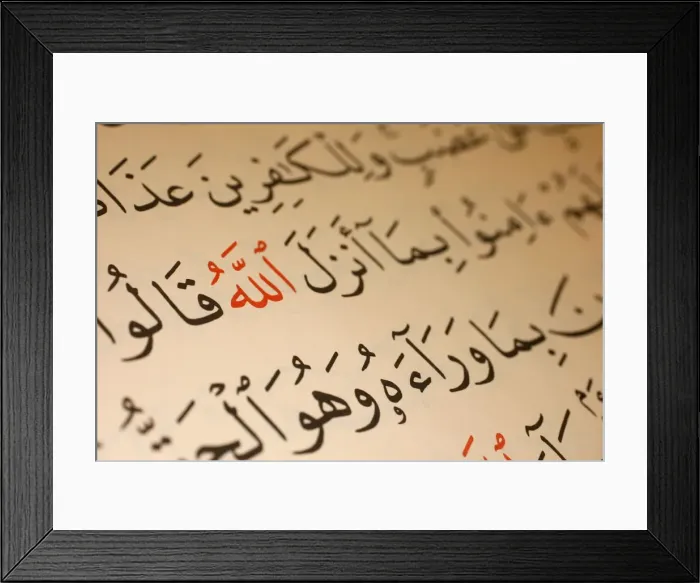 غَضَبٍ وَلِلْكَٰفِرِينَ عَذَا
لَهُمْ ءَامِنُوا۟ بِمَآ أَنزَلَ ٱللَّهُ قَالُوا۟
بِمَا وَرَآءَهُۥ وَهُوَ ٱلْحَقُّ